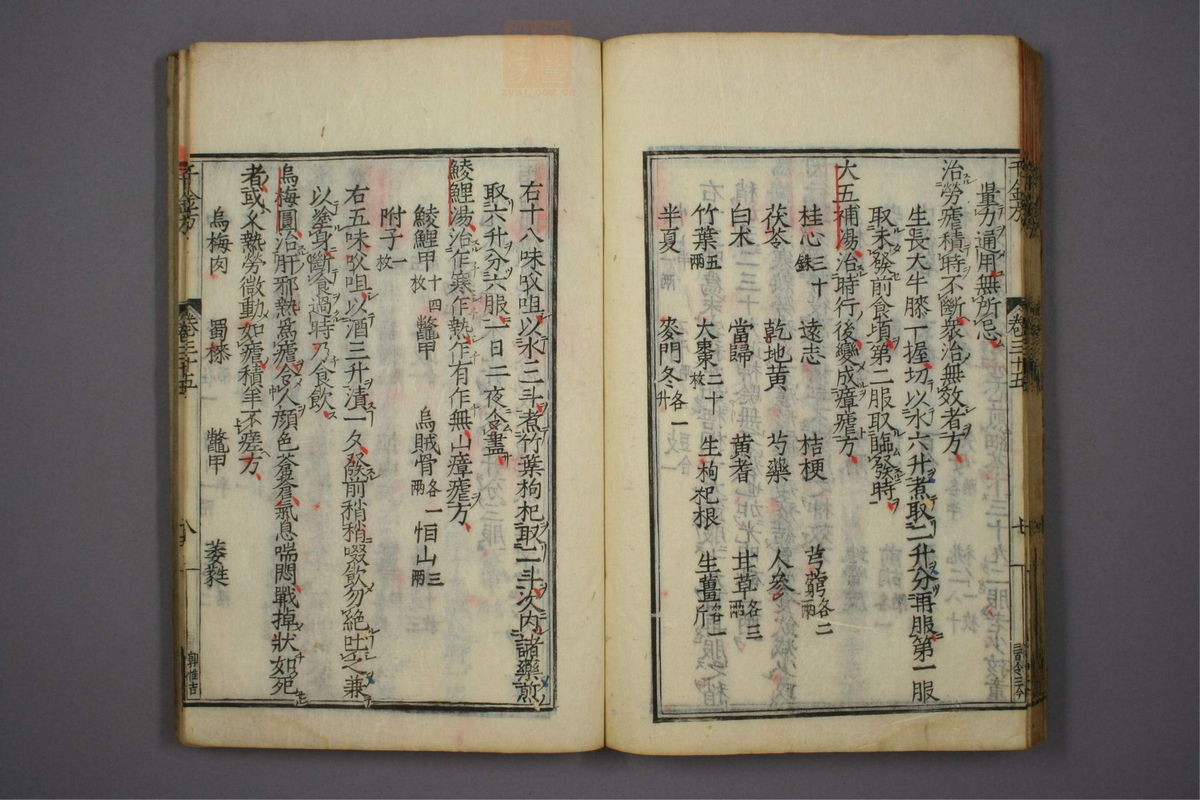 量力通用無所忌
治勞瘧積時不斷衆治無效者方
生長大牛膝一握切以水六升煮取二升分再服第一服
取未發前食頃第二服取臨發時
大五補湯治時行後變成瘴瘧方
桂心三十銖 遠志 桔梗 芎藭各二兩
茯苓 乾地黄 芍藥 人參
白朮 當歸 黄耆 甘草各三兩
竹葉五兩 大棗二十枚 生枸杞根 生薑各一斤
半夏 麥門冬各一升
千金方 卷三十五 七
右十八味㕮咀以水三斗煮竹葉枸杞取二斗次内諸藥煎
取六升分六服一日二夜令盡
鯪鯉湯治作寒作熱作有作無山瘴瘧方
鯪鯉甲十四枚 鼈甲 烏賊骨各一兩 恒山三兩
附子一枚
右五味㕮咀以酒三升漬一夕發前稍稍啜飲勿絶吐之兼
以塗身斷食過時乃食飲
烏梅圓治肝邪熱爲瘧令人顔色蒼蒼氣息喘悶戰掉狀如死
者或久熱勞微動如瘧積年不瘥方
烏梅肉 蜀漆 鼈甲 萎蕤
千金方 卷三十五 八